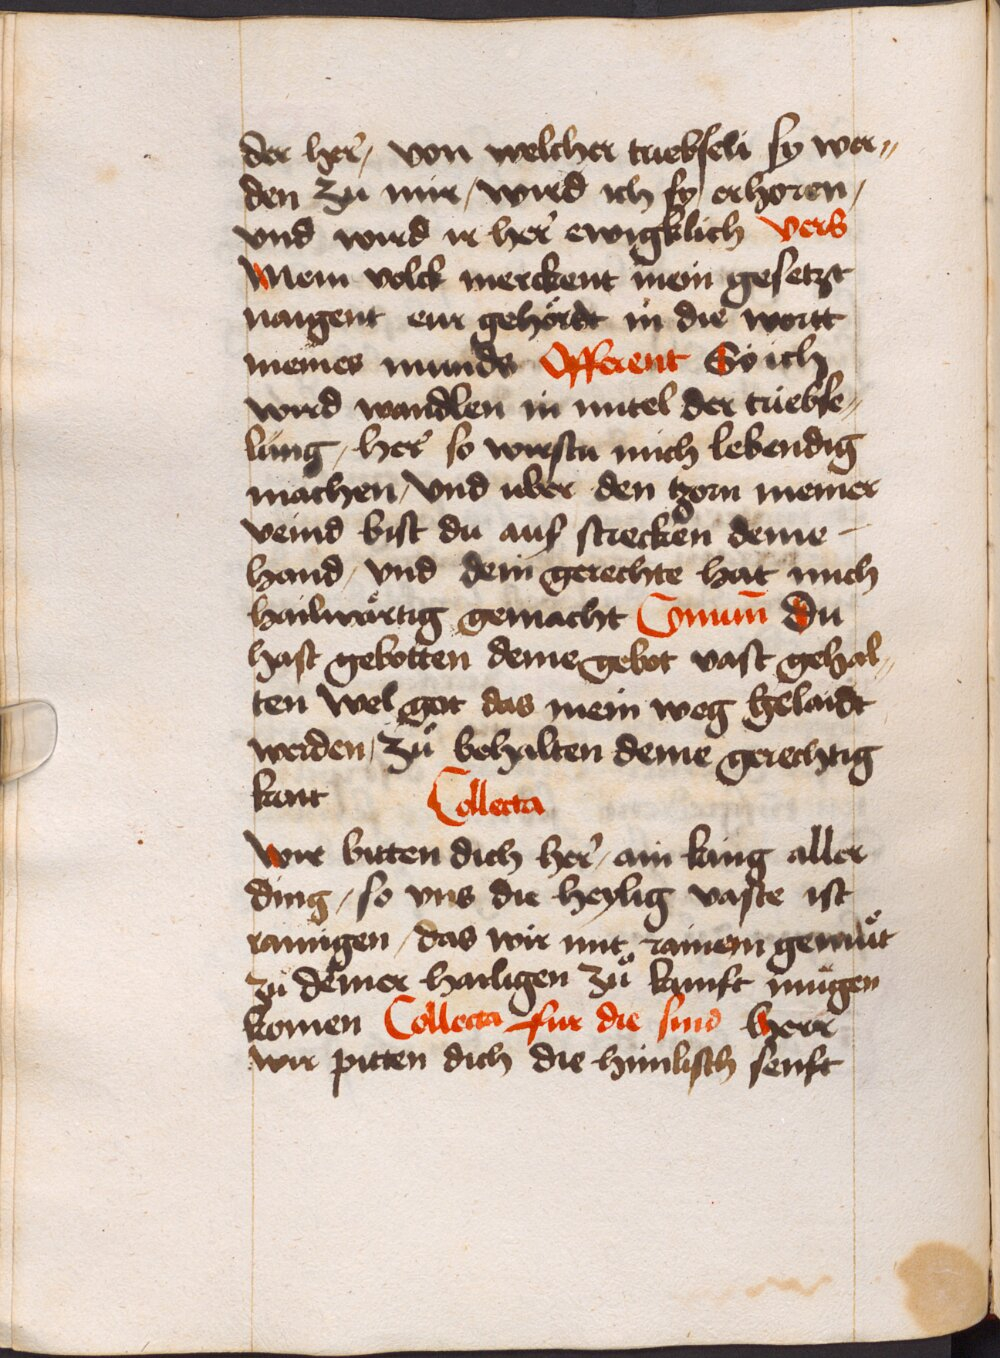 der her, von welcher truebseli sy wer„
den zu mir, wird ich sy erhoren,
vnd wird ir her ewigklich vers
Mein volck merckent mein gesetzt
naigent eur gehördt in die wortt
meines munds Offerent So ich
wird wandlen in mitel der trüebse„
lung, her so wirstu mich lebendig
machen, vnd uber den tzorn meiner
veind bist du auf strecken deine
hand, vnd dein gerechte hat mich
hailwärtig gemacht Comun̄ Du
hast gebotten deine gebot vast gehal„
ten wel got das mein weg gelaidt
werden, zu behalten deine gerechtig
kait Collecta
Wir bitten dich her, ain king aller
ding, so vns die heylig vaste ist
rainigen, das wir mit rainem gemüt
zu deiner hailigen zů kunft mugen
komen Collecta fur die sund herr
wir pitten dich die himlisch senft